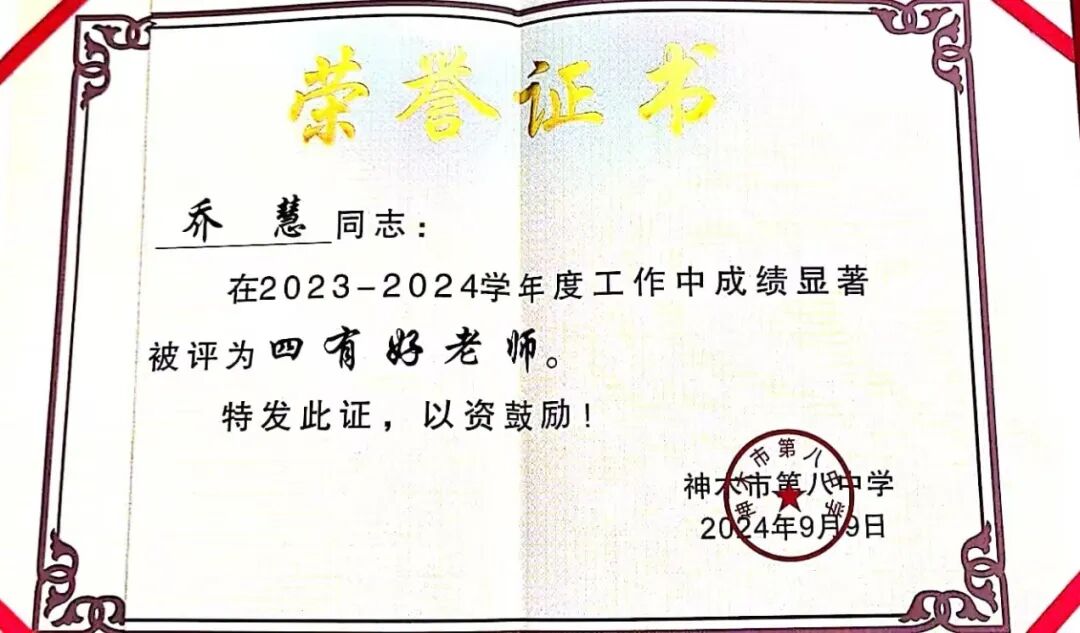 荣誉证书
乔 慧同志：
在2023-2024学年度工作中成绩显著
被评为四有好老师。
特发此证，以资鼓励！
神木市第八中学
2024年9月9日
神木市第八中学